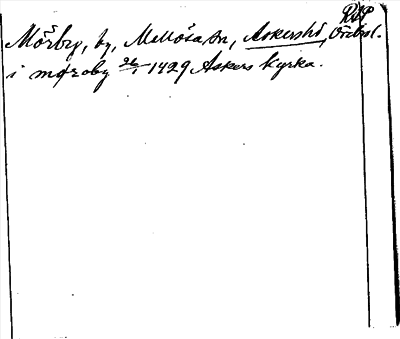 RAP
Mörby, by, Mellösa sn, Askershd, Örebrol.
i møroby 26/1 1429 Askers kyrka.